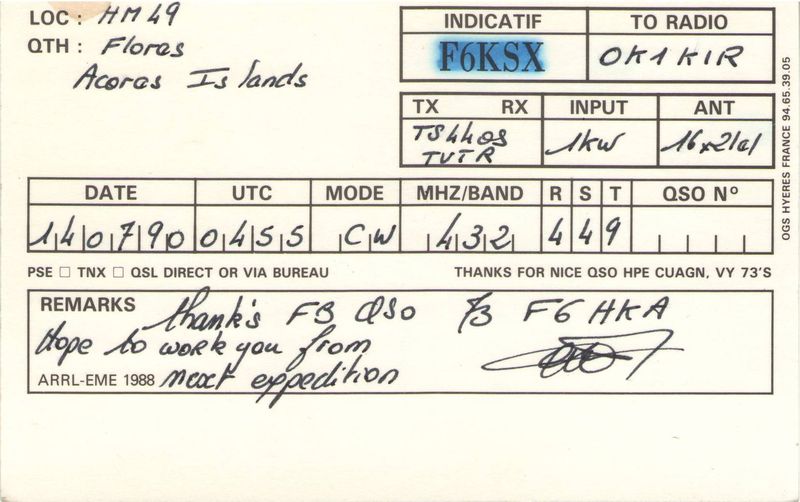 LOC: HM49
QTH: Flores
Acores Islands
INDICATIF TO RADIO
F6KSX OK1KIR
TX RX INPUT ANT
TS440S 1kW 16x21el
TVTR
DATE UTC MODE MHZ/BAND R S T QSO N°
140790 0455 CW 432 4 4 9
PSE □ TNX □ QSL DIRECT OR VIA BUREAU THANKS FOR NICE QSO HPE CUAGN, VY 73'S
REMARKS thank's FB QSO 73 F6HKA
Hope to work you from
ARRL-EME 1988 next expedition
OGS HYERES FRANCE 94.65.39.05